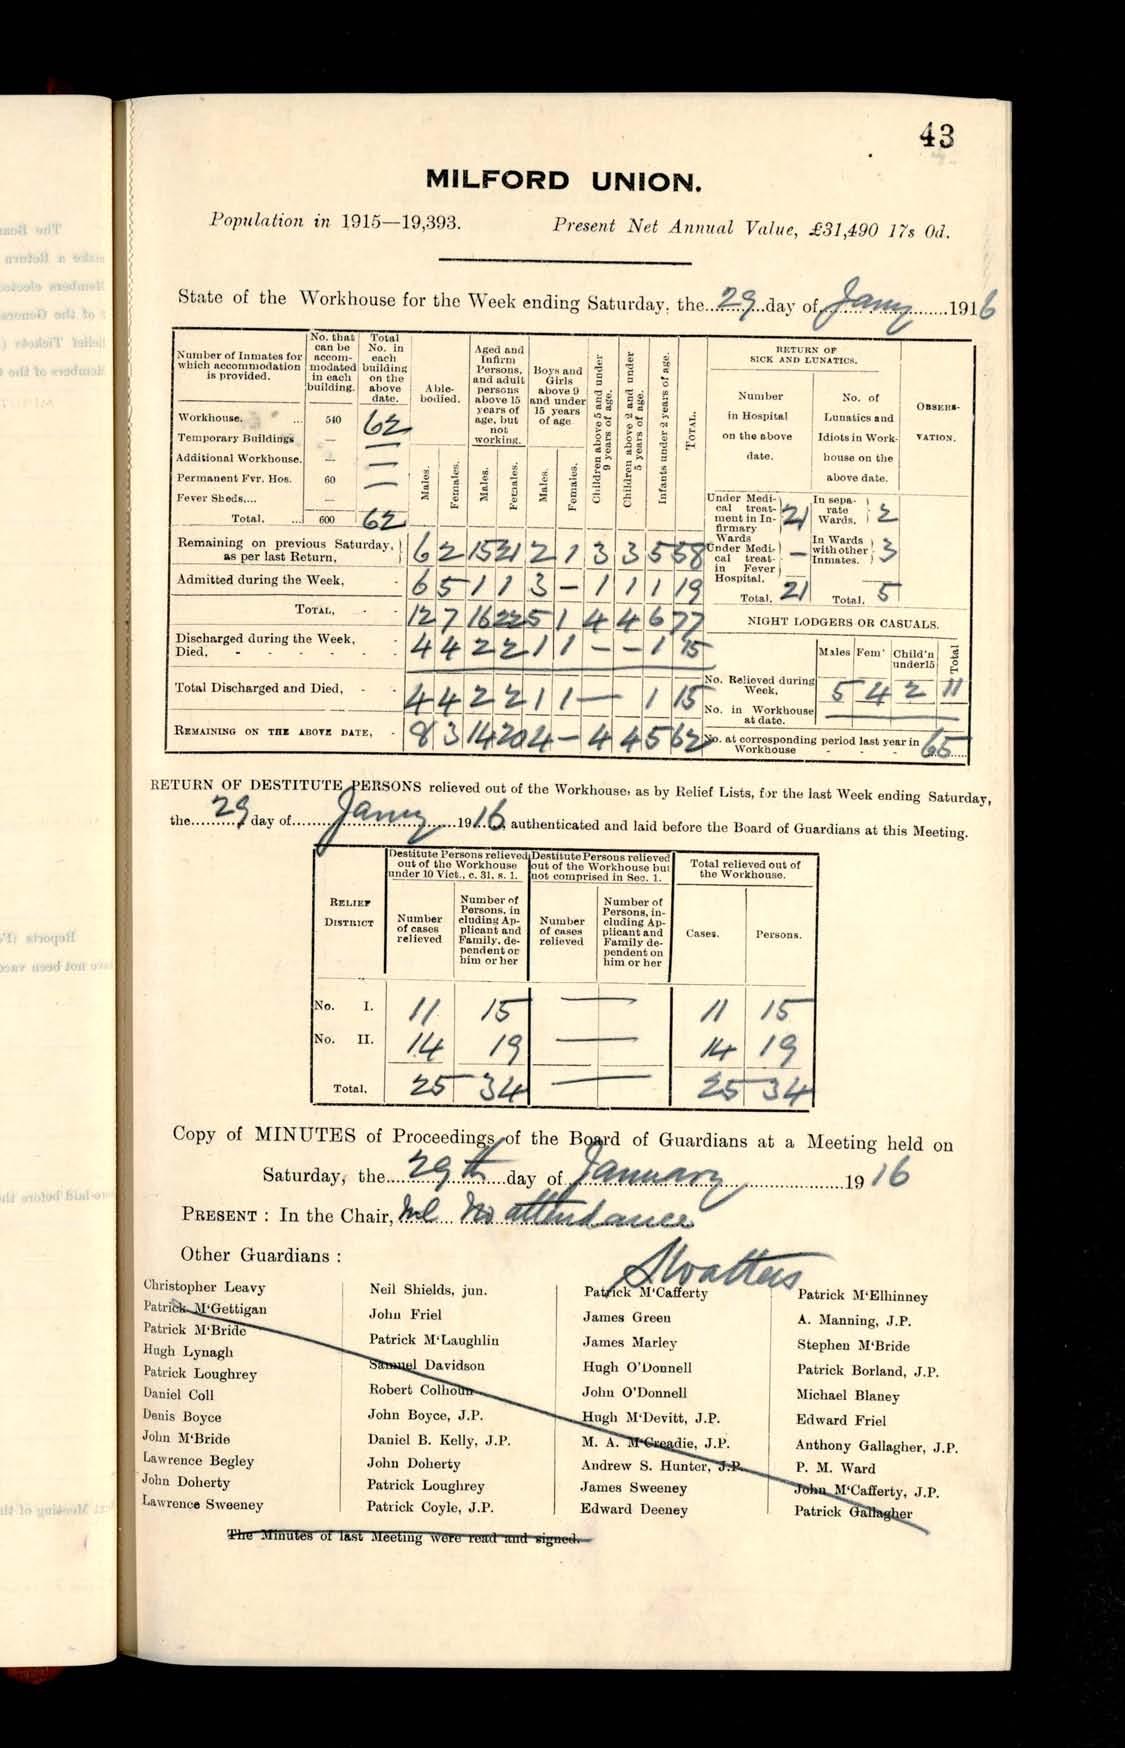 43
MILFORD UNION.
Population in 1915—19,393. Present Net Annual Value, £31,490 17s 0d.
State of the Workhouse for the Week ending Saturday, the 29 day of Jany 1916
Number of Inmates for which accommodation is provided. No. that can be accommodated in each building. Total No. in each building on the above date.
Workhouse. ... 540 62
Temporary Buildings — —
Additional Workhouse. — —
Permanent Fvr. Hos. 60 —
Fever Sheds.... —
Total. ... 600 62
Able-bodied. Males. Females.
Aged and Infirm Persons, and adult persons above 15 years of age, but not working. Males. Females.
Boys and Girls above 9 and under 15 years of age Males. Females.
Children above 5 and under 9 years of age.
Children above 2 and under 5 years of age.
Infants under 2 years of age.
TOTAL.
Remaining on previous Saturday, as per last Return, 6 2 15 21 2 1 3 3 5 58
Admitted during the Week, - 6 5 1 1 3 — 1 1 1 19
TOTAL, - - 12 7 16 22 5 1 4 4 6 77
Discharged during the Week, - 4 4 2 2 1 1 — — 1 15
Died, - - - - - -
Total Discharged and Died, - - 4 4 2 2 1 1 — 1 15
REMAINING ON THE ABOVE DATE, - 8 3 14 20 4 — 4 4 5 62
RETURN OF SICK AND LUNATICS.
Number in Hospital on the above date.
No. of Lunatics and Idiots in Workhouse on the above date.
OBSERVATION.
Under Medical treatment in Infirmary Wards 21
Under Medical treat- in Fever Hospital. —
Total. 21
In separate Wards. 2
In Wards with other Inmates. 3
Total. 5
NIGHT LODGERS OR CASUALS.
Males Fem' Child'n under15 Total
No. Relieved during Week, 5 4 2 11
No. in Workhouse at date.
No. at corresponding period last year in Workhouse - - - 65
RETURN OF DESTITUTE PERSONS relieved out of the Workhouse, as by Relief Lists, for the last Week ending Saturday,
the 29 day of Jany 1916, authenticated and laid before the Board of Guardians at this Meeting.
RELIEF DISTRICT
Destitute Persons relieved out of the Workhouse under 10 Vict., c. 31, s. 1.
Number of cases relieved
Number of Persons, including Applicant and Family, dependent on him or her
Destitute Persons relieved out of the Workhouse but not comprised in Sec. 1.
Number of cases relieved
Number of Persons, including Applicant and Family dependent on him or her
Total relieved out of the Workhouse.
Cases. Persons.
No. I. 11 15 — 11 15
No. II. 14 19 — 14 19
Total. 25 34 — 25 34
Copy of MINUTES of Proceedings of the Board of Guardians at a Meeting held on
Saturday, the 29th day of January 1916
PRESENT : In the Chair, No attendance
Other Guardians :
Christopher Leavy
Patrick M'Gettigan
Patrick M'Bride
Hugh Lynagh
Patrick Loughrey
Daniel Coll
Denis Boyce
John M'Bride
Lawrence Begley
John Doherty
Lawrence Sweeney
Neil Shields, jun.
John Friel
Patrick M'Laughlin
Samuel Davidson
Robert Colhoun
John Boyce, J.P.
Daniel B. Kelly, J.P.
John Doherty
Patrick Loughrey
Patrick Coyle, J.P.
Patrick M'Cafferty
James Green
James Marley
Hugh O'Donnell
John O'Donnell
Hugh M'Devitt, J.P.
M. A. M'Creadie, J.P.
Andrew S. Hunter, J.P.
James Sweeney
Edward Deeney
Patrick M'Elhinney
A. Manning, J.P.
Stephen M'Bride
Patrick Borland, J.P.
Michael Blaney
Edward Friel
Anthony Gallagher, J.P.
P. M. Ward
John M'Cafferty, J.P.
Patrick Gallagher
The Minutes of last Meeting were read and signed.